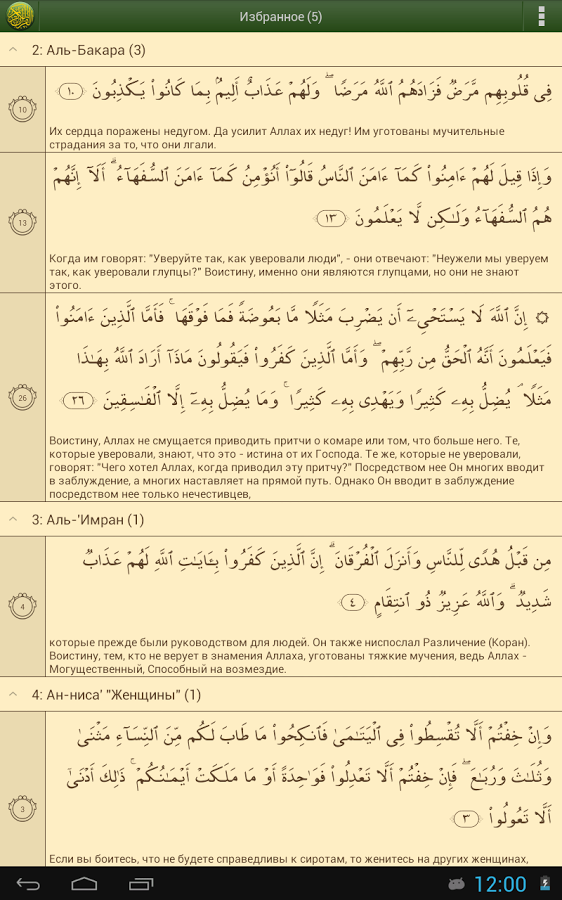 Избранное (5)
2: Аль-Бакара (3)
10
فِى قُلُوبِهِم مَّرَضٌ فَزَادَهُمُ ٱللَّهُ مَرَضًا ۖ وَلَهُمْ عَذَابٌ أَلِيمٌۢ بِمَا كَانُوا۟ يَكْذِبُونَ ١٠
Их сердца поражены недугом. Да усилит Аллах их недуг! Им уготованы мучительные
страдания за то, что они лгали.
13
وَإِذَا قِيلَ لَهُمْ ءَامِنُوا۟ كَمَآ ءَامَنَ ٱلنَّاسُ قَالُوٓا۟ أَنُؤْمِنُ كَمَآ ءَامَنَ ٱلسُّفَهَآءُ ۗ أَلَآ إِنَّهُمْ
هُمُ ٱلسُّفَهَآءُ وَلَـٰكِن لَّا يَعْلَمُونَ ١٣
Когда им говорят: "Уверуйте так, как уверовали люди", - они отвечают: "Неужели мы уверуем
так, как уверовали глупцы?" Воистину, именно они являются глупцами, но они не знают
этого.
26
۞ إِنَّ ٱللَّهَ لَا يَسْتَحْىِۦٓ أَن يَضْرِبَ مَثَلًا مَّا بَعُوضَةً فَمَا فَوْقَهَا ۚ فَأَمَّا ٱلَّذِينَ ءَامَنُوا۟
فَيَعْلَمُونَ أَنَّهُ ٱلْحَقُّ مِن رَّبِّهِمْ ۖ وَأَمَّا ٱلَّذِينَ كَفَرُوا۟ فَيَقُولُونَ مَاذَآ أَرَادَ ٱللَّهُ بِهَـٰذَا
مَثَلًا ۘ يُضِلُّ بِهِۦ كَثِيرًا وَيَهْدِى بِهِۦ كَثِيرًا ۚ وَمَا يُضِلُّ بِهِۦٓ إِلَّا ٱلْفَـٰسِقِينَ ٢٦
Воистину, Аллах не смущается приводить притчи о комаре или том, что больше него. Те,
которые уверовали, знают, что это - истина от их Господа. Те же, которые не уверовали,
говорят: "Чего хотел Аллах, когда приводил эту притчу?" Посредством нее Он многих вводит
в заблуждение, а многих наставляет на прямой путь. Однако Он вводит в заблуждение
посредством нее только нечестивцев,
3: Аль-'Имран (1)
4
مِن قَبْلُ هُدًى لِّلنَّاسِ وَأَنزَلَ ٱلْفُرْقَانَ ۗ إِنَّ ٱلَّذِينَ كَفَرُوا۟ بِـَٔايَـٰتِ ٱللَّهِ لَهُمْ عَذَابٌ
شَدِيدٌ ۗ وَٱللَّهُ عَزِيزٌ ذُو ٱنتِقَامٍ ٤
которые прежде были руководством для людей. Он также ниспослал Различение (Коран).
Воистину, тем, кто не верует в знамения Аллаха, уготованы тяжкие мучения, ведь Аллах -
Могущественный, Способный на возмездие.
4: Ан-ниса' "Женщины" (1)
3
وَإِنْ خِفْتُمْ أَلَّا تُقْسِطُوا۟ فِى ٱلْيَتَـٰمَىٰ فَٱنكِحُوا۟ مَا طَابَ لَكُم مِّنَ ٱلنِّسَآءِ مَثْنَىٰ
وَثُلَـٰثَ وَرُبَـٰعَ ۖ فَإِنْ خِفْتُمْ أَلَّا تَعْدِلُوا۟ فَوَٰحِدَةً أَوْ مَا مَلَكَتْ أَيْمَـٰنُكُمْ ۚ ذَٰلِكَ أَدْنَىٰٓ
أَلَّا تَعُولُوا۟ ٣
Если вы боитесь, что не будете справедливы к сиротам, то женитесь на других женщинах,
12:00